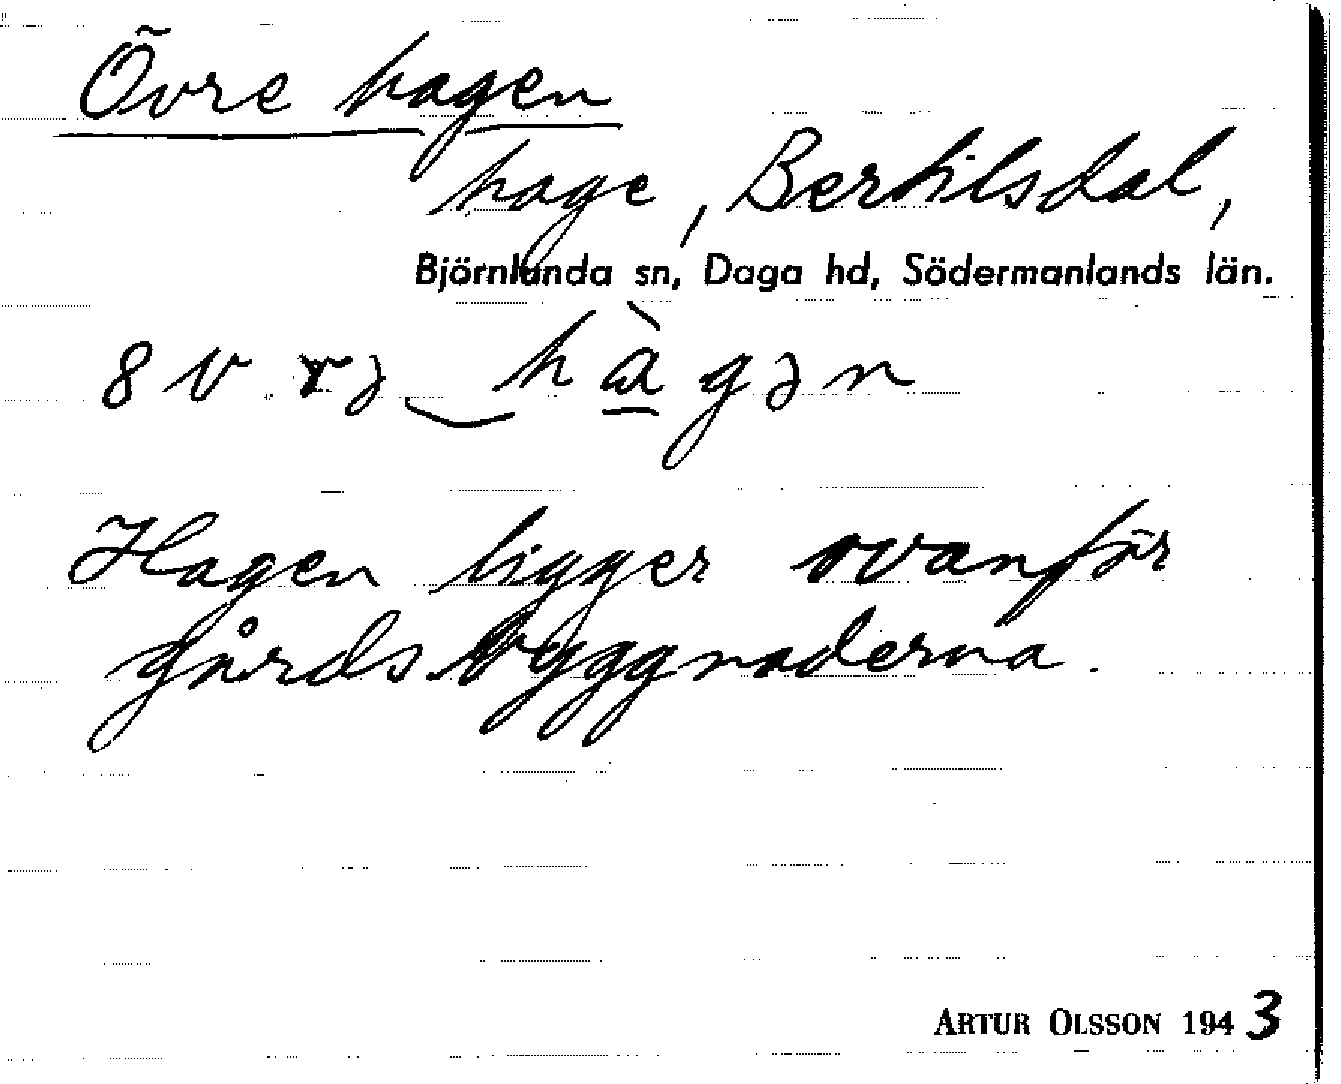 Övre hagen
hage, Bertilsdal,
Björnlunda sn, Daga hd, Södermanlands län.
8v.rə‿hàgən
Hagen ligger ovanför
gårdsbyggnaderna.
ARTUR OLSSON 1943